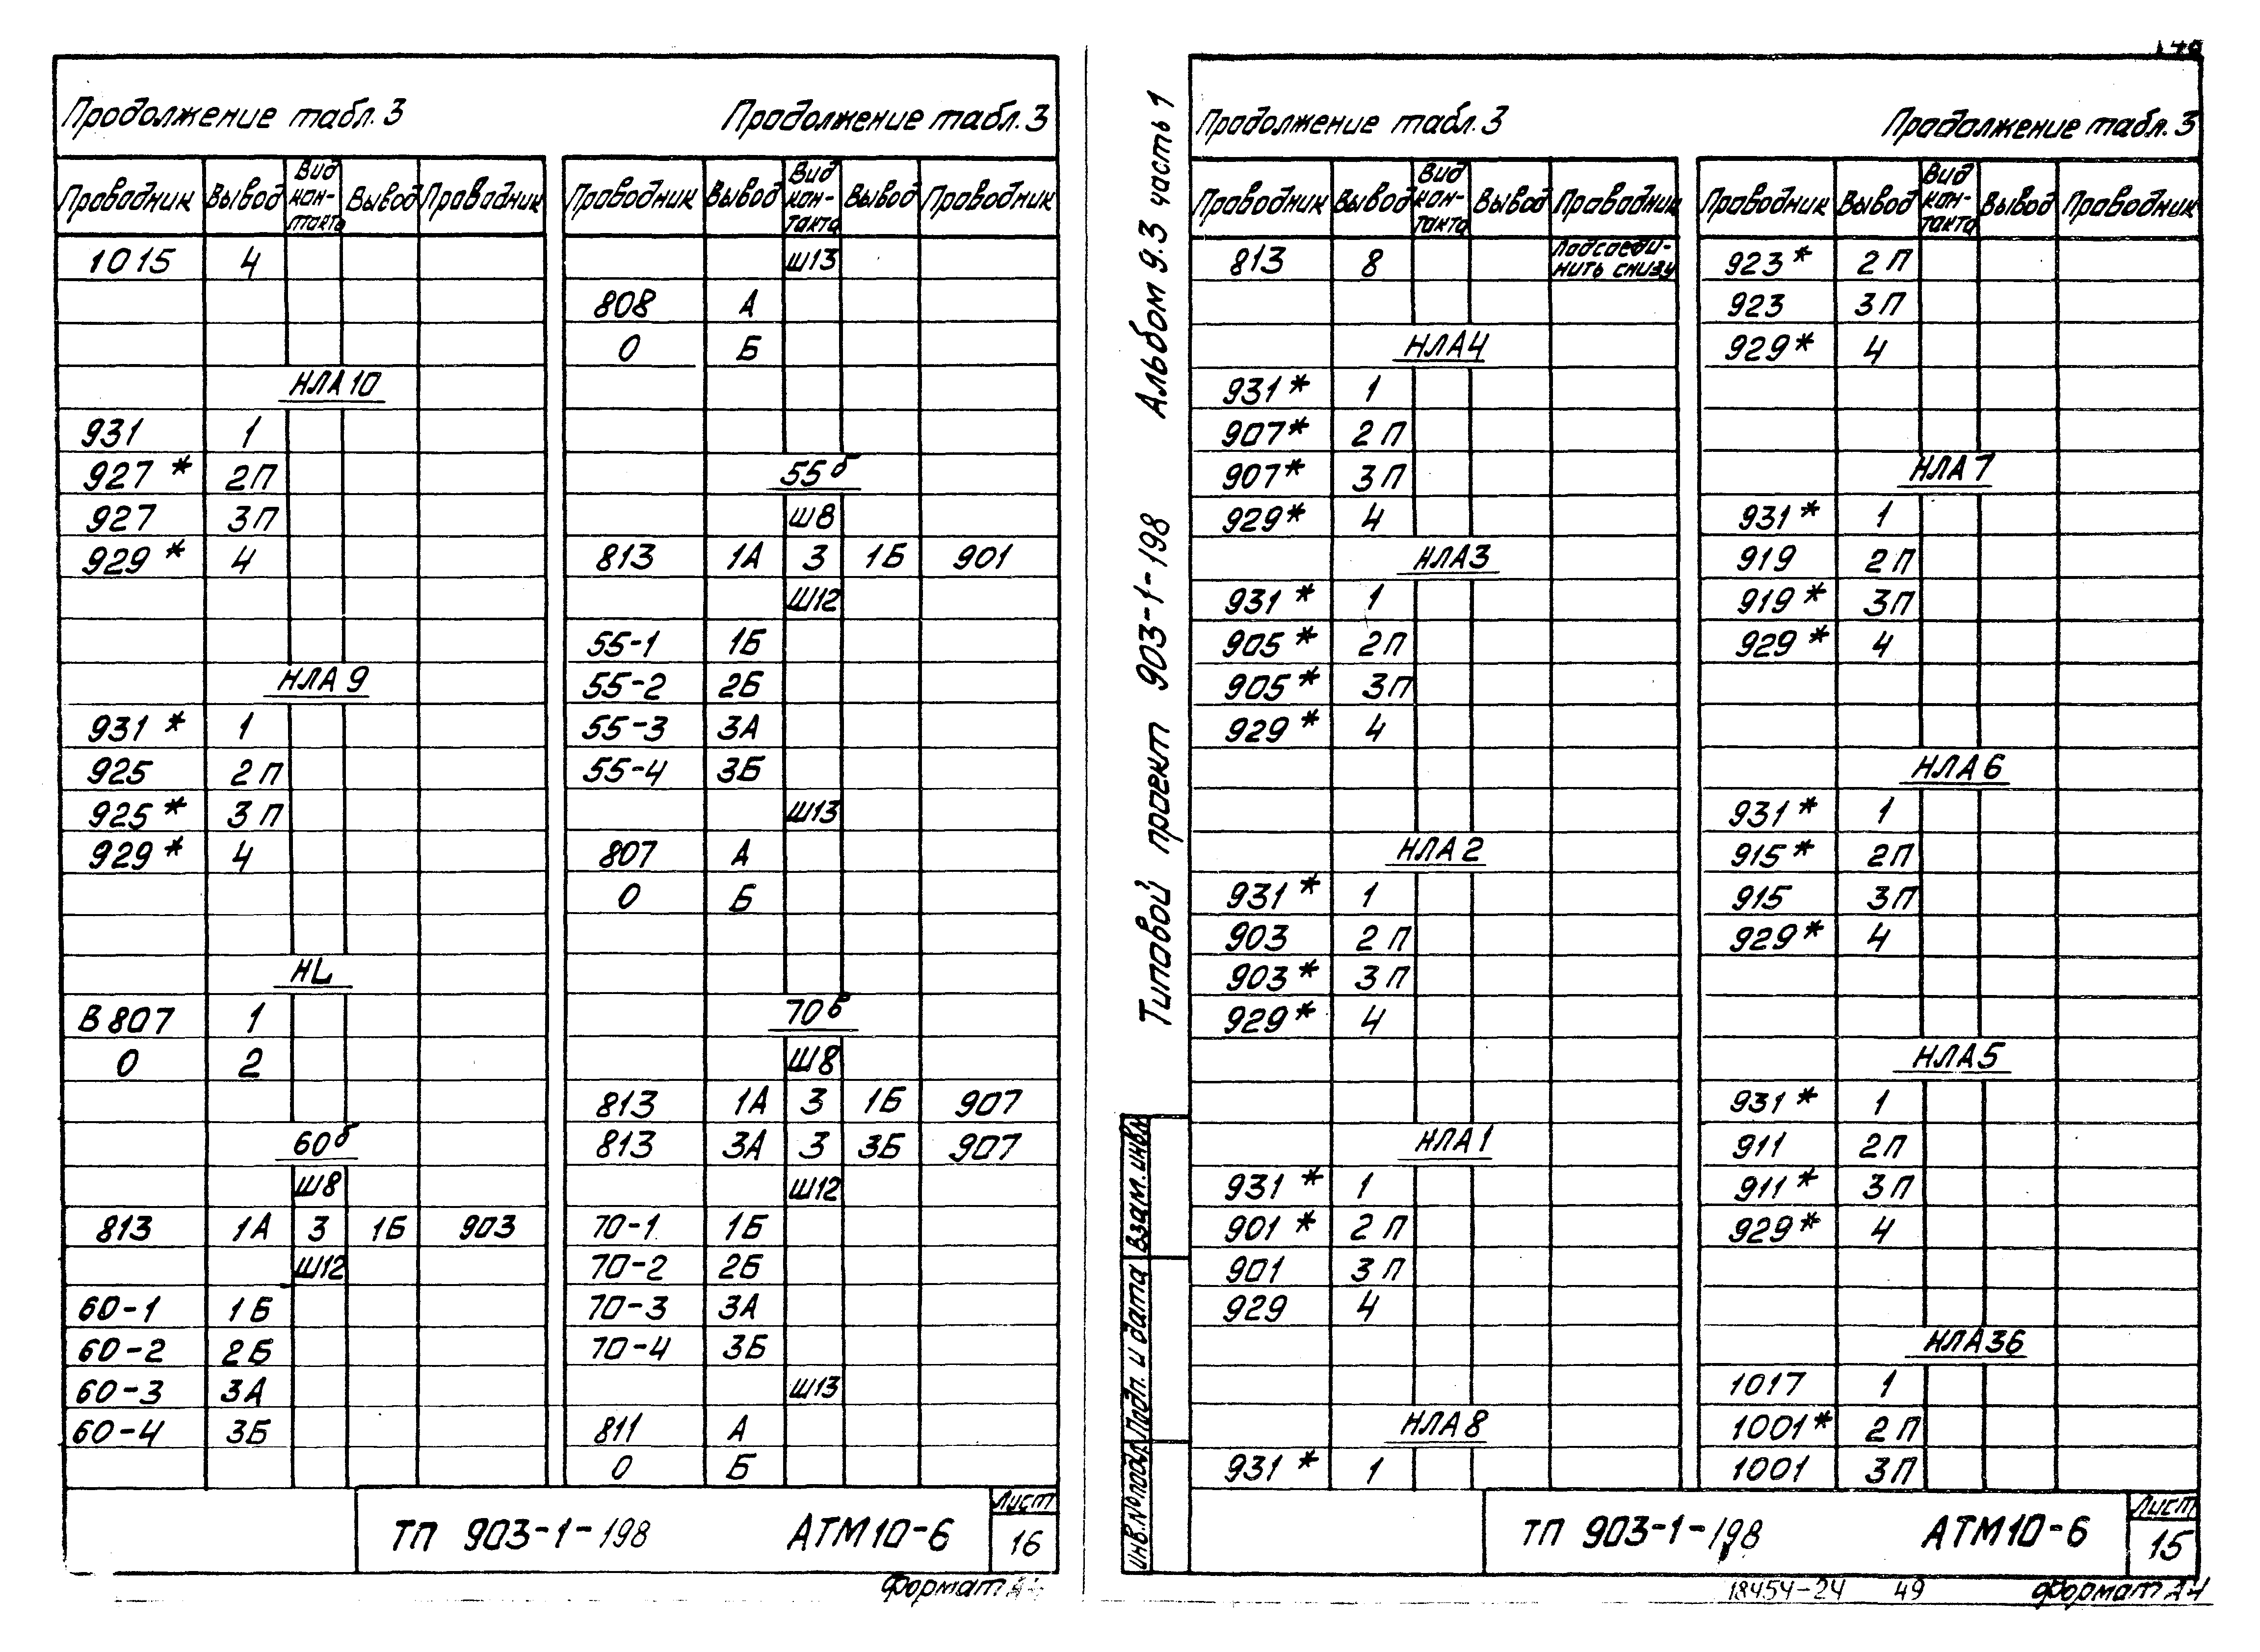 Продолжение табл.3
Продолжение табл.3
Проводник Вывод Вид кон-такта Вывод Проводник
Проводник Вывод Вид кон-такта Вывод Проводник
1015 4
НЛА10
931 1
927* 2П
927 3П
929* 4
НЛА9
931* 1
925 2П
925* 3П
929* 4
HL
В807 1
0 2
60б
Ш8
813 1А З 1Б 903
Ш12
60-1 1Б
60-2 2Б
60-3 3А
60-4 3Б
Ш13
808 А
0 Б
55б
Ш8
813 1А З 1Б 901
Ш12
55-1 1Б
55-2 2Б
55-3 3А
55-4 3Б
Ш13
807 А
0 Б
70б
Ш8
813 1А З 1Б 907
813 3А З 3Б 907
Ш12
70-1 1Б
70-2 2Б
70-3 3А
70-4 3Б
Ш13
811 А
0 Б
ТП 903-1-198 АТМ10-6
Лист
16
Формат
Альбом 9.3 часть 1
Типовой проект 903-1-198
Взам. инв.№
Подп. и дата
Инв.№подл.
Продолжение табл.3
Продолжение табл.3
Проводник Вывод Вид кон-такта Вывод Проводник
Проводник Вывод Вид кон-такта Вывод Проводник
813 8 Подсоеди-
нить снизу
НЛА4
931* 1
907* 2П
907* 3П
929* 4
НЛА3
931* 1
905* 2П
905* 3П
929* 4
НЛА2
931* 1
903 2П
903* 3П
929* 4
НЛА1
931* 1
901* 2П
901 3П
929 4
НЛА8
931* 1
923* 2П
923 3П
929* 4
НЛА7
931* 1
919 2П
919* 3П
929* 4
НЛА6
931* 1
915* 2П
915 3П
929* 4
НЛА5
931* 1
911 2П
911* 3П
929* 4
НЛА36
1017 1
1001* 2П
1001 3П
ТП 903-1-198 АТМ10-6
Лист
15
18454-24 49 Формат А4